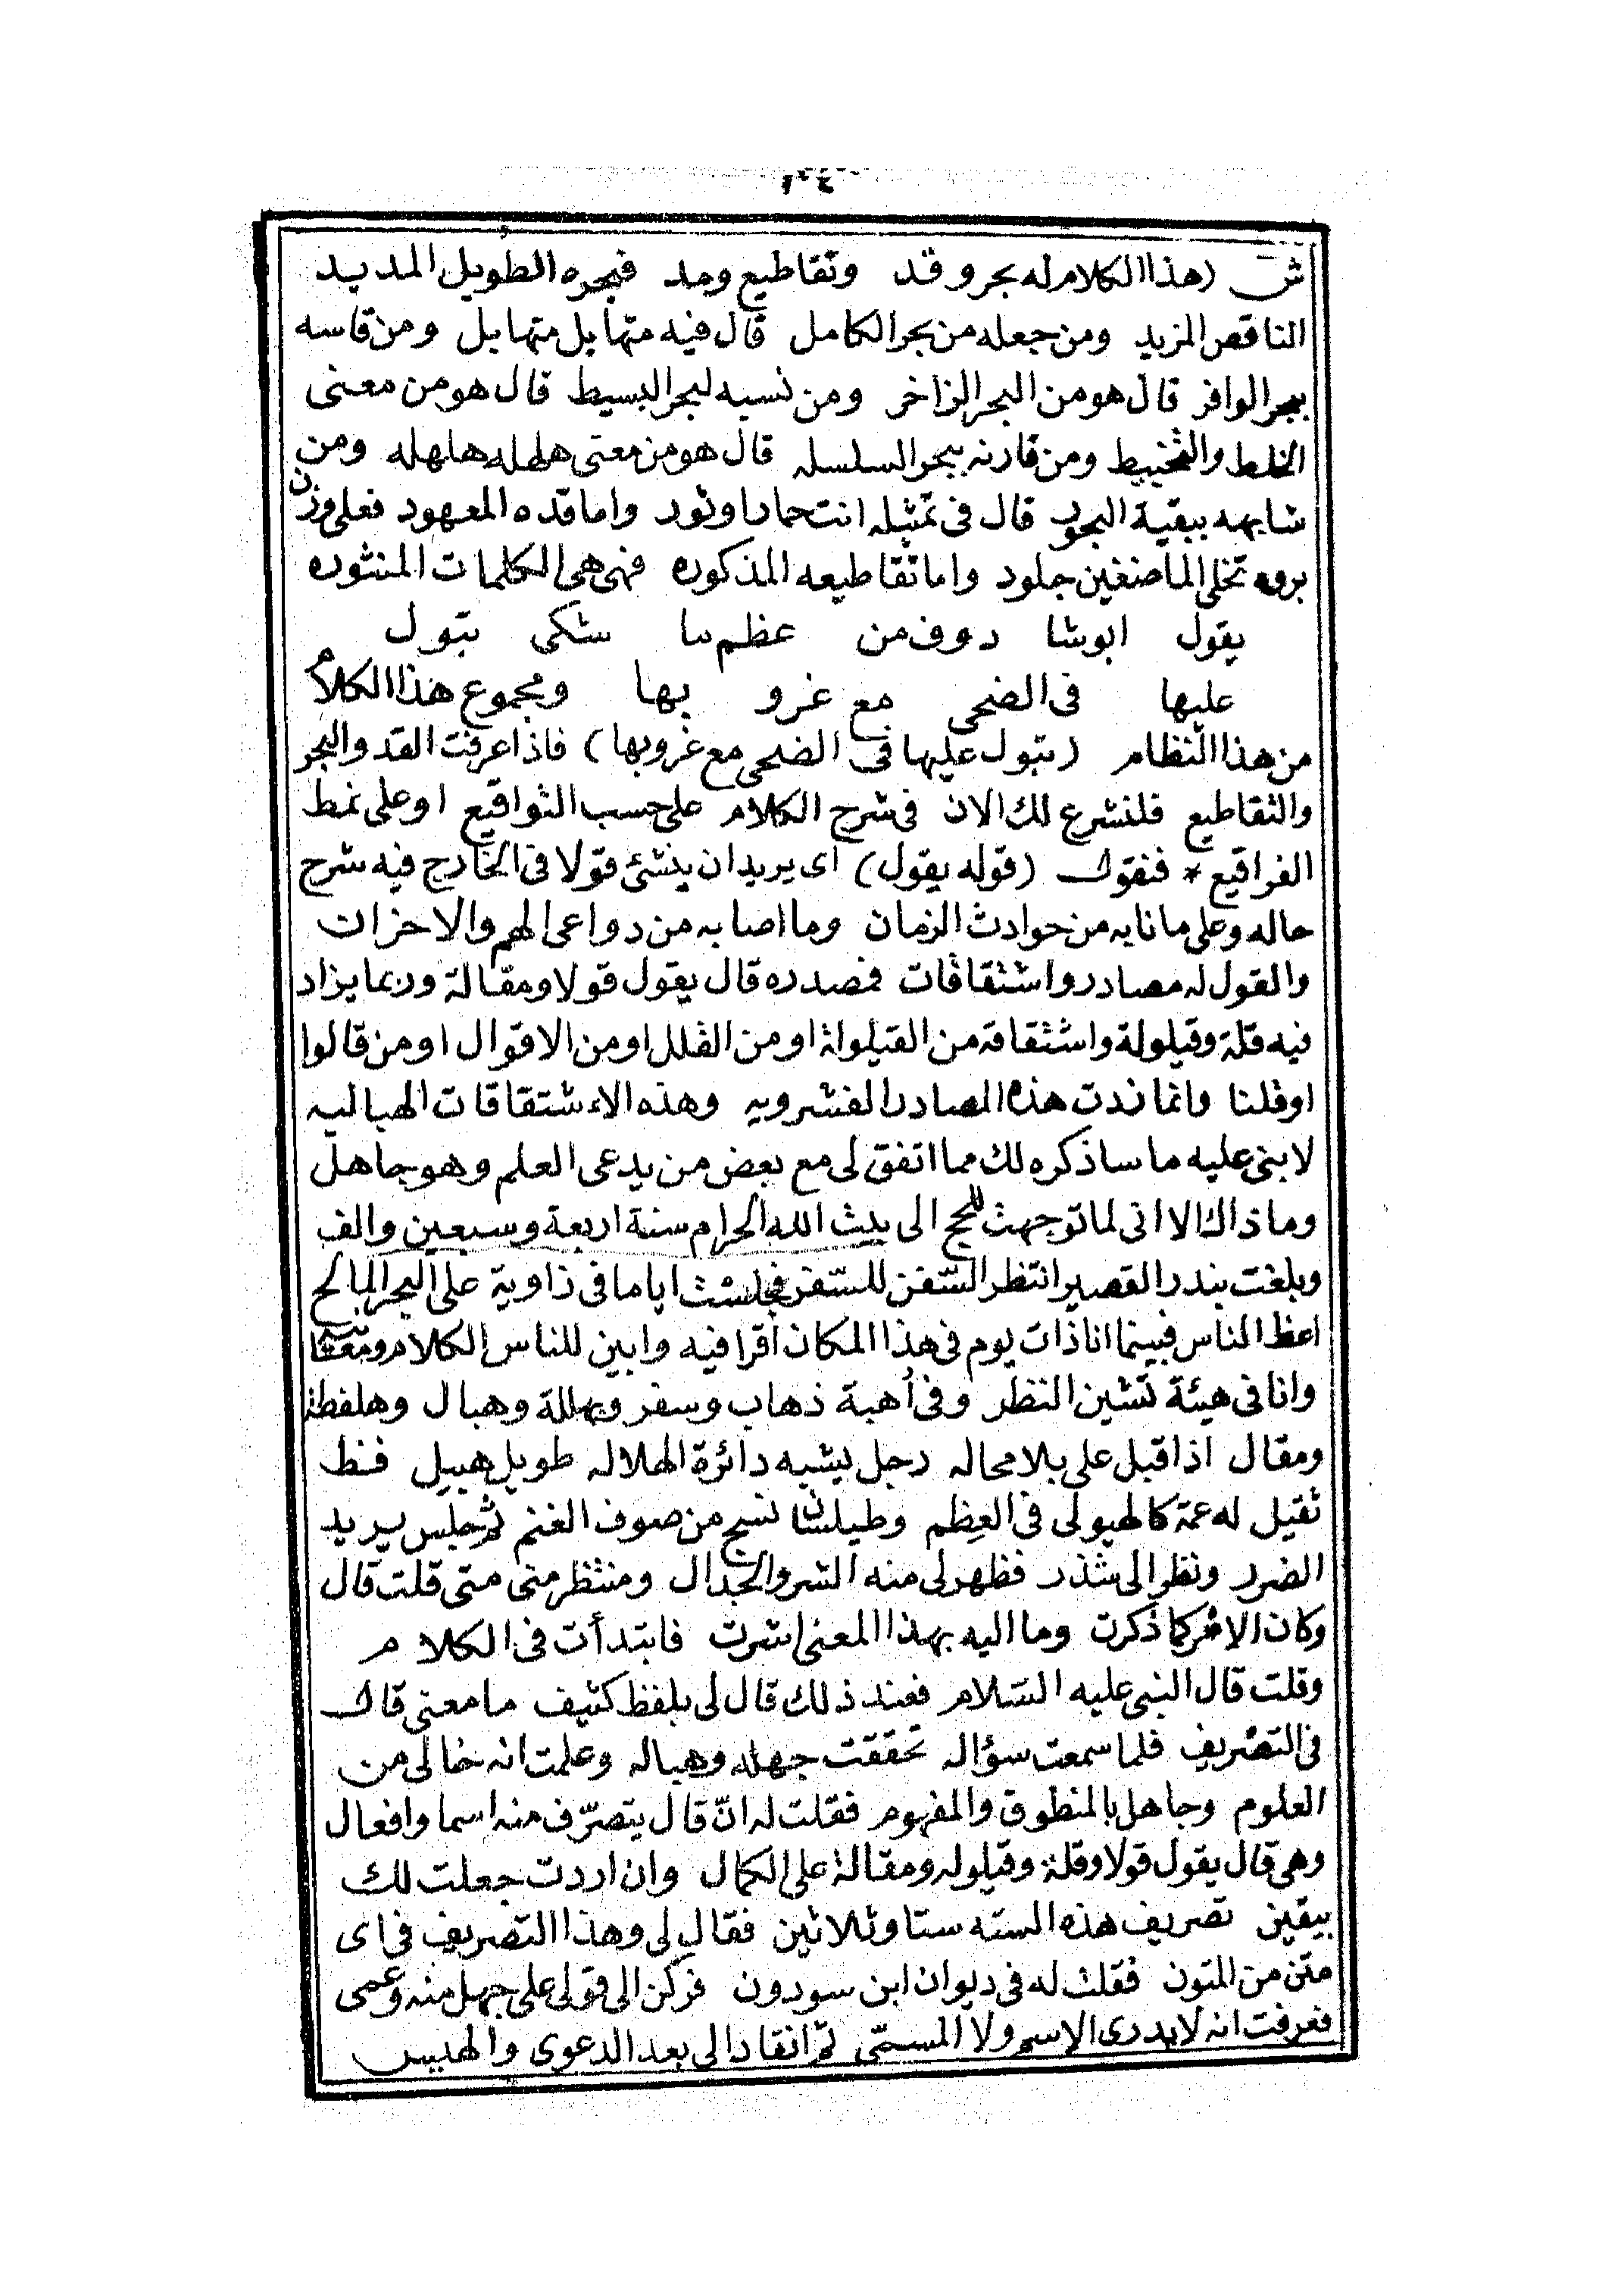 ١٠٤
ش (هذا الكلام له بحر وقد وتقاطيع ومد فبحره الطويل المديد
الناقص المزيد ومن جعله من بحر الكامل قال فيه متهابل متهابل ومن قاسه
ببحر الوافر قال هو من البحر الزاخر ومن نسبه لبحر البسيط قال هو من معنى
الخلط والتخبيط ومن قارنه ببحر السلسله قال هو من معنى هلهله هلهله ومن
شابهه ببقية البحور قال فى تمثيله انت حمار او ثور واما قده المعهود فعلى وزن
بروه تخلى الماضغين جلود واما تقاطيعه المذكوره فهى هى الكلمات المنثوره
يقول ابوشا دوف من عظم ما شكى تبول
عليها فى الضحى مع غرو بها ومجموع هذا الكلام
من هذا النظام (تبول عليها فى الضحى مع غروبها) فاذا عرفت القد والبحر
والتقاطيع فلنشرع لك الان فى شرح الكلام على حسب التواقيع او على نمط
الفراقيع * فنقول (قوله يقول) اى يريد ان ينشئ قولا فى الخارج فيه شرح
حاله وعلى ما نابه من حوادث الزمان وما اصابه من دواعى الهم والاحزان
والقول له مصادر واشتقاقات فمصدره قال يقول قولا ومقالة وربما يزاد
فيه قلة وقيلولة واشتقاقه من القيلولة او من القلل او من الاقوال او من قالوا
او قلنا وانما زدت هذه المصادر الفشرويه وهذه الاشتقاقات الهباليه
لابنى عليه ما ساذكره لك مما اتفق لى مع بعض من يدعى العلم وهو جاهل
وما ذاك الا انى لما توجهت للحج الى بيت الله الحرام سنة اربعة وسبعين والف
وبلغت بندر القصير انتظر السفن للسفر فجلست اياما فى زاوية على البحر المالح
اعظ الناس فبينما انا ذات يوم فى هذا المكان أقرا فيه وابين للناس الكلام ومعناه
وانا فى هيئة تشين النظر وفى أهبة ذهاب وسفر وبهللة وهبال وهلفطة
ومقال اذ اقبل على بلا محاله رجل يشبه دائرة الهلاله طويل هبيل فظ
ثقيل له عمة كالهيولى فى العظم وطيلسان نسج من صوف الغنم ثم جلس يريد
الضرر ونظر الى شذر فظهر لى منه الشر والجدال ومنتظر منى متى قلت قال
وكان الامر كما ذكرت وما اليه بهذا المعنى اشرت فابتدأت فى الكلام
وقلت قال النبى عليه السلام فعند ذلك قال لى بلفظ كثيف ما معنى قال
فى التصريف فلما سمعت سؤاله تحققت جهله وهباله وعلمت انه خالى من
العلوم وجاهل بالمنطوق والمفهوم فقلت له انّ قال يتصرّف منه اسما وافعال
وهى قال يقول قولا وقلة وقيلوله ومقالة على الكمال وان اردت جعلت لك
بيقين تصريف هذه السته ستا وثلاثين فقال لى وهذا التصريف فى اى
متن من المتون فقلت له فى ديوان ابن سودون فركن الى قولى على جهل منه وعمى
فعرفت انه لا يدرى الاسم ولا المسمّى ثم انقاد الى بعد الدعوى والهبيس